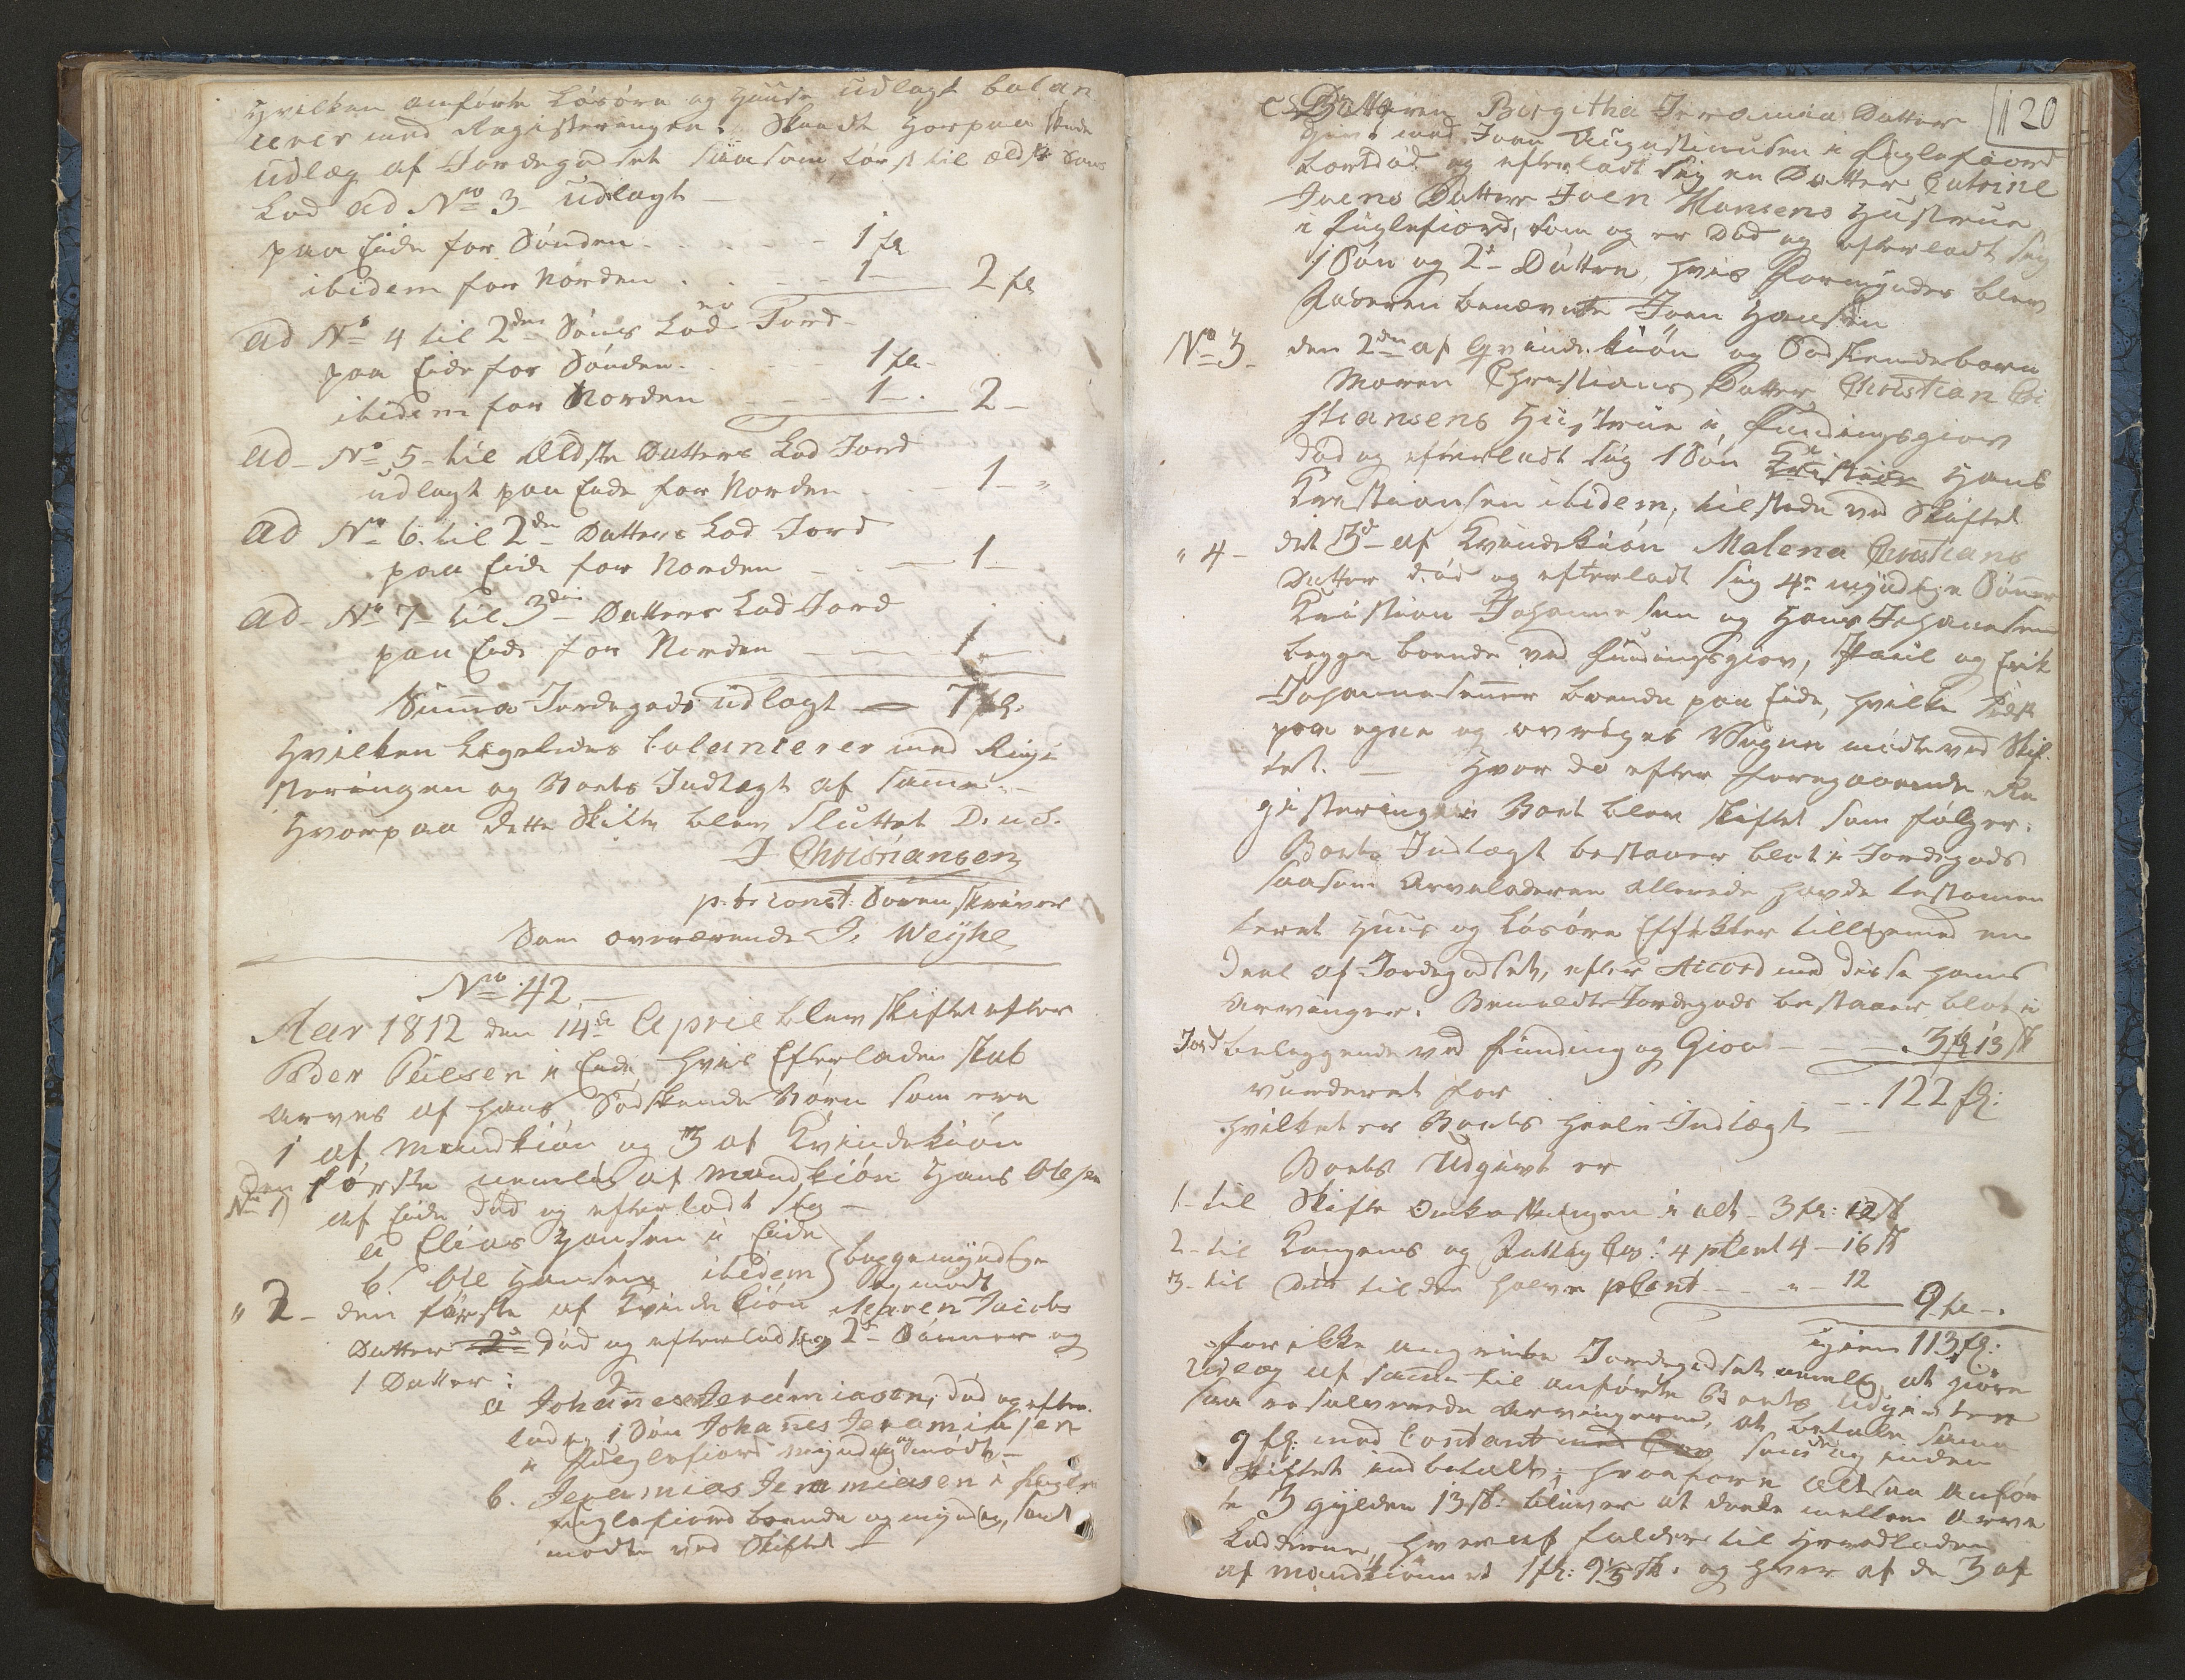 Hvilken anførte Løsøre og Huuse udlagt balan
cerer med Registeringen. Skeedt Herpaa skede
udlæg af Jordegodset saasom først til ældste Søns
Lod ad No 3 udlagt
paa Eide for Sønden - - - 1 fl
ibidem for Norden - - - 1 - 2 fl
ad No 4 til 2den Søns Lod Jord
paa Eide for Sønden - - - 1 fl
ibidem for Norden - - - 1 - 2 -
ad No 5 til Ældste Datters Lod Jord
udlagt paa Eide for Norden - - 1 -
ad No 6. til 2den Datters Lod Jord
paa Eide for Norden - - - 1 -
ad No 7 til 3die Datters Lod Jord
paa Eide for Norden - - - 1 -
Suma Jordegods udlagt - 7 fl.
Hvilken Ligeledes balancerer med Regi
steringen og Boets Indtægt af samme. -
Hvorpaa dette Skifte blev sluttet D. u. S.
J Christiansen
p. t. const: Soren skriver
Som overværende J. Weyhe
No 42
Aar 1812 den 14de April blev skiftet efter
Peder Olesen i Eide, hvis Efterladenskab
arves af hans Sødskende Børn som ere
1 af Mandkiøn og 3 af Kvindekiøn
den første nemlig af Mandkiøn Hans Olesen
No 1) af Eide død og efterladt sig -
a Elias Hansen i Eide
b. Ole Hansen ibidem } begge myndige og mødt
" 2 - den første af Kvindekiøn Maren Jacobs
Datter død og efterlod sig 2de Sønner og
1 Datter:
a Johannes Jeramiasen, død og efter
lod sig 1 Søn Johannes Jeramiasen
i Fuglefiord myndig og mødt -
b. Jeramias Jeramiasen i Fugle
fuglefiord boende og myndig, samt
mødte ved Skiftet -
120
c. Datteren Birgitha Jeramia Datter
givt med Joen Augustinusen i Fuglefiord
bortdød og efterladt sig en Datter Catrine
Joens Datter Joen Hansens Hustrue
i Fuglefiord, som og er død og efterladt sig
1 Søn og 2de Døttre, hvis Formynder blev
Faderen benævnte Joen Hansen
No 3 - den 2den af Qvindekiøn og Sødskendebarn
Maren Christians Datter, Christian Cri
stiansens Hustrue i Fundingsgiov
død og efterladt sig 1 Søn Hans
Kristiansen ibidem, tilstede ved Skiftet
" 4 - det 3de af Kvindekiøn Malena Christians
Datter død og efterladt sig 4re myndige Sønner
Kristian Johannesen og Hans Johannesen
begge boende ved Fundingsgiov, Poul og Erik
Johannesener boende paa Eide, hvilke sidst
paa egne og øvriges Vegne mødte ved Skif
tet. - Hvor da efter foregaaende Re
gistering i Boet blev skiftet som følger:
Boets Indtægt bestaaer blot i Jordegods
saasom Arveladeren allerede havde testamen
teret Huus og Løsøre Effekter tilligemed en
Deel af Jordegodset, efter Accord med disse hans
Arvinger. Bemeldte Jordegods bestaaer blot i
Jord beliggende ved Funding og Giov - - 3 fl 13 sk
vurderet for - - 122 fl:
hvilket er Boets heele Indtægt -
Boets Udgivt er
1 - til Skifte Omkostningen i alt - 3 fl: 12 sk
2 - til Kongens og Fattig Cas: 4 pCent 4 - 16 sk
3 - til dito til den halve pCent - - " - 12
9 fl -
igien 113 fl:
for ikke angribe Jordegodset nemlig at giøre
udlæg af samme til anførte Boets udgivter
saa resolverede Arvingerne, at betale samme
9 fl: med Contant som og inden
Skiftet indbetalt; hvorfore altsaa anfør
te 3 gylden 13 sk: bliver at deele mellem Arve
Lodderne, hvoraf falder til Hovedloden
af Mandkiønnet 1 fl: 9 1/5 sk. og hver af de 3 af